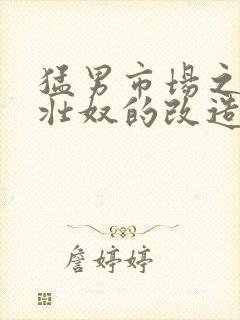 猛男市场之
壮奴的改造
詹婷婷